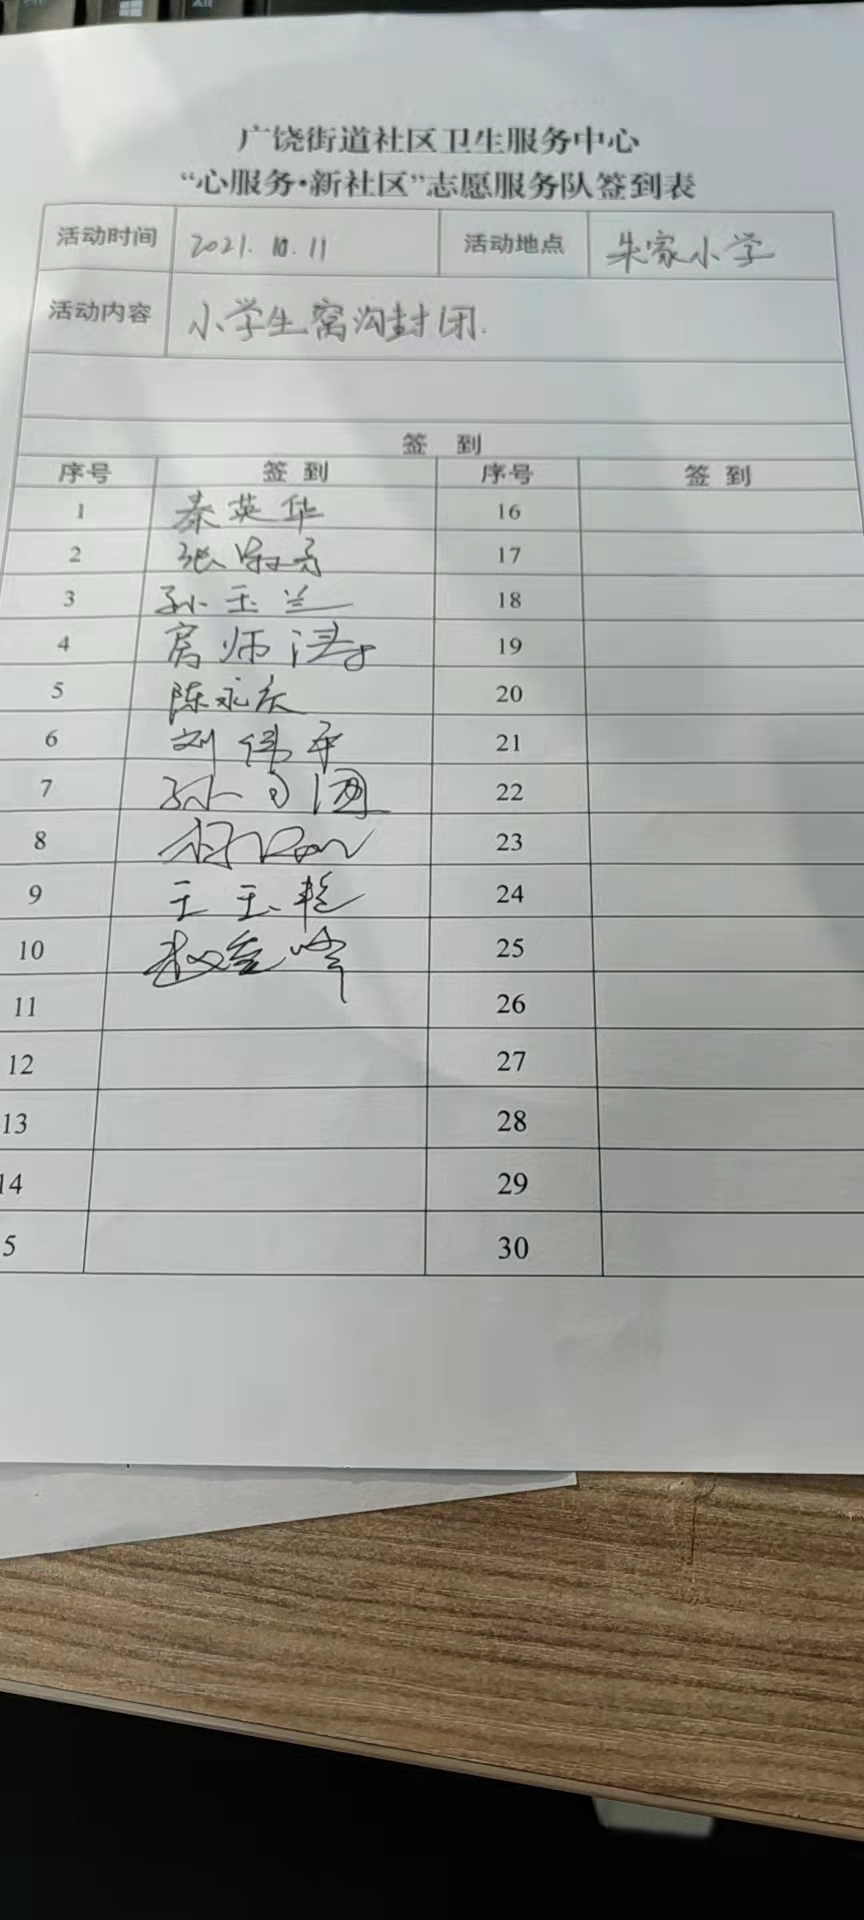 广饶街道社区卫生服务中心
“心服务·新社区”志愿服务队签到表
活动时间 2021.10.11 活动地点 朱家小学
活动内容 小学生窝沟封闭.
签 到
序号 签 到 序号 签 到
1 秦英华 16
2 张 17
3 孙玉兰 18
4 房师涛 19
5 陈永庆 20
6 刘伟平 21
7 孙 22
8 23
9 王玉艳 24
10 赵金峰 25
11 26
12 27
13 28
14 29
5 30